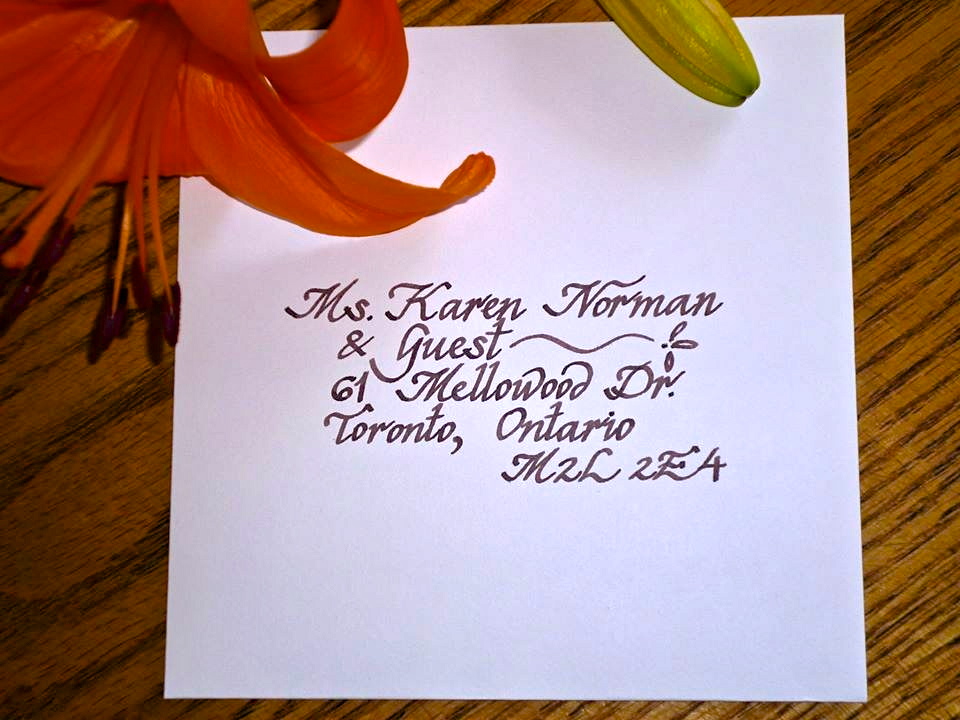 Ms. Karen Norman
& Guest
61 Mellowood Dr.
Toronto, Ontario
M2L 2E4